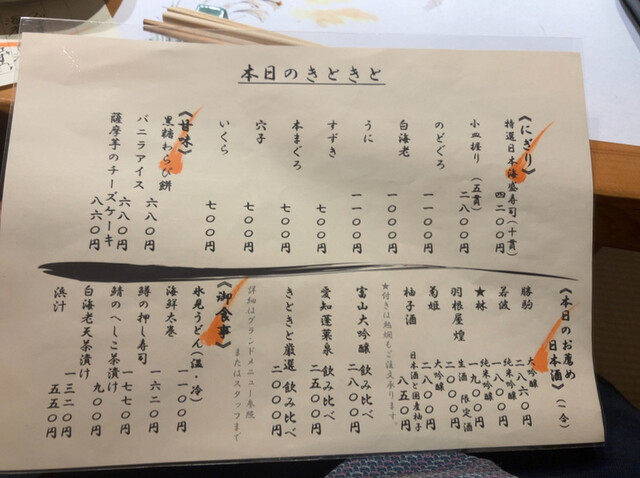 本日のきときと
《にぎり》
特選日本海盛寿司(十貫)
四二〇〇円
小皿握り(五貫)
二八〇〇円
のどぐろ
一一〇〇円
白海老
一一〇〇円
うに
一一〇〇円
すずき
七〇〇円
本まぐろ
七〇〇円
穴子
七〇〇円
いくら
七〇〇円
《甘味》
黒糖わらび餅
バニラアイス
六八〇円
薩摩芋のチーズケーキ
六八〇円
八六〇円
《本日のお薦め日本酒》(一合)
勝駒
大吟醸
二八六〇円
若波
純米吟醸
一八〇〇円
★林
純米吟醸
一九〇〇円
羽根屋煌
生酒 限定酒
二〇〇〇円
菊姫
大吟醸
二八〇〇円
柚子酒
日本酒と国産柚子
八五〇円
★付きは熱燗もご注文承ります。
富山大吟醸 飲み比べ
二八〇〇円
愛知蓬莱泉 飲み比べ
二五〇〇円
きときと厳選 飲み比べ
二〇〇〇円
詳細はグランドメニュー参照
またはスタッフまで
《御食事》
氷見うどん(温・冷)
一一〇〇円
海鮮太巻
一六二〇円
鱒の押し寿司
一七七〇円
鯖のへしこ茶漬け
九〇〇円
白海老天茶漬け
一三一〇円
浜汁
五五〇円